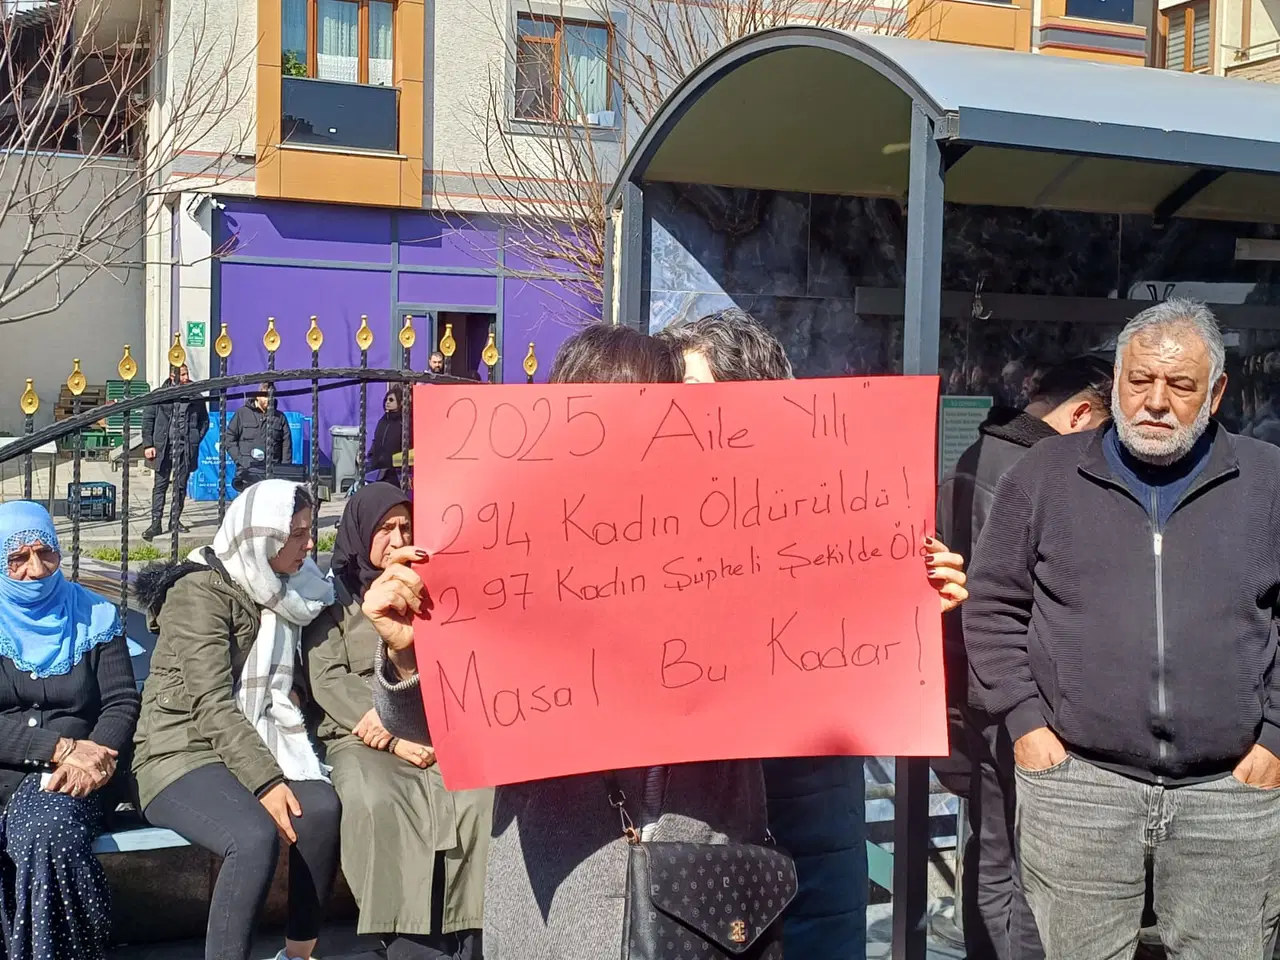 2025 "Aile Yılı"
294 Kadın Öldürüldü!
297 Kadın Şüpheli Şekilde Öld
Masal Bu Kadar!